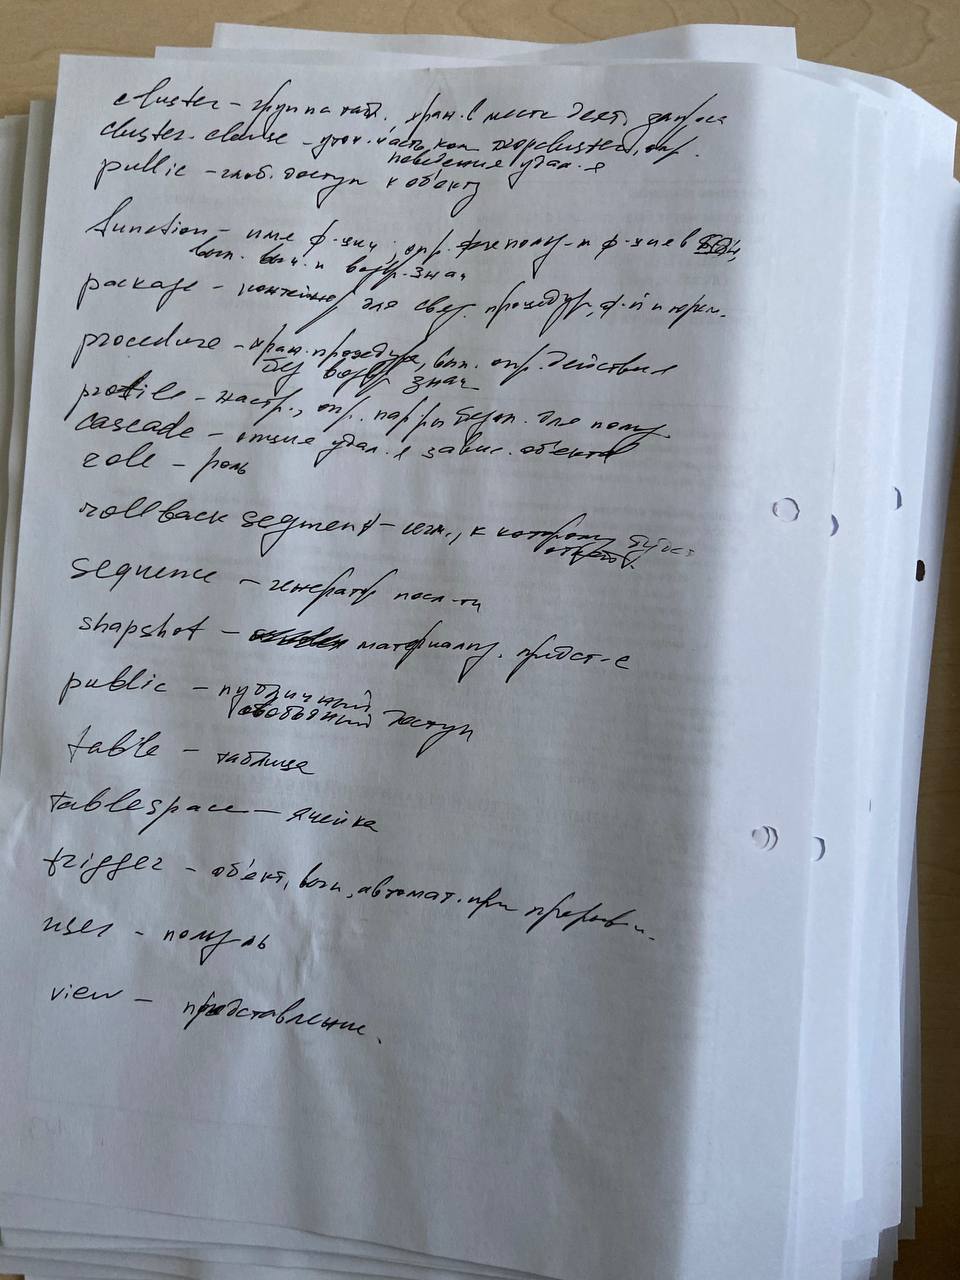 cluster – группа табл. хран. вместе
cluster-clause – уточ. часть, ком. drop cluster, опр.
поведение удал-я
public – глоб. доступ к объекту
function – имя ф-ции, опр. ф-ция в
вып. выч. и возвр. знач
package – контейнер для связ. процедур, ф-й и перем.
procedure – хран. процедура, вып. опр. действия
без возвр. знач
profile – настр., опр. пар-ры безоп. для польз
cascade – опция удал-я завис. объектов
role – роль
rollback segment – сегм., к которому будет
sequence – генератор посл-ти
shapshot – материализ. предст-е
public – публичный
доступ
table – таблица
tablespace – ячейка
trigger – объект, вып. автомат. при
user – польз-ль
view – представление.